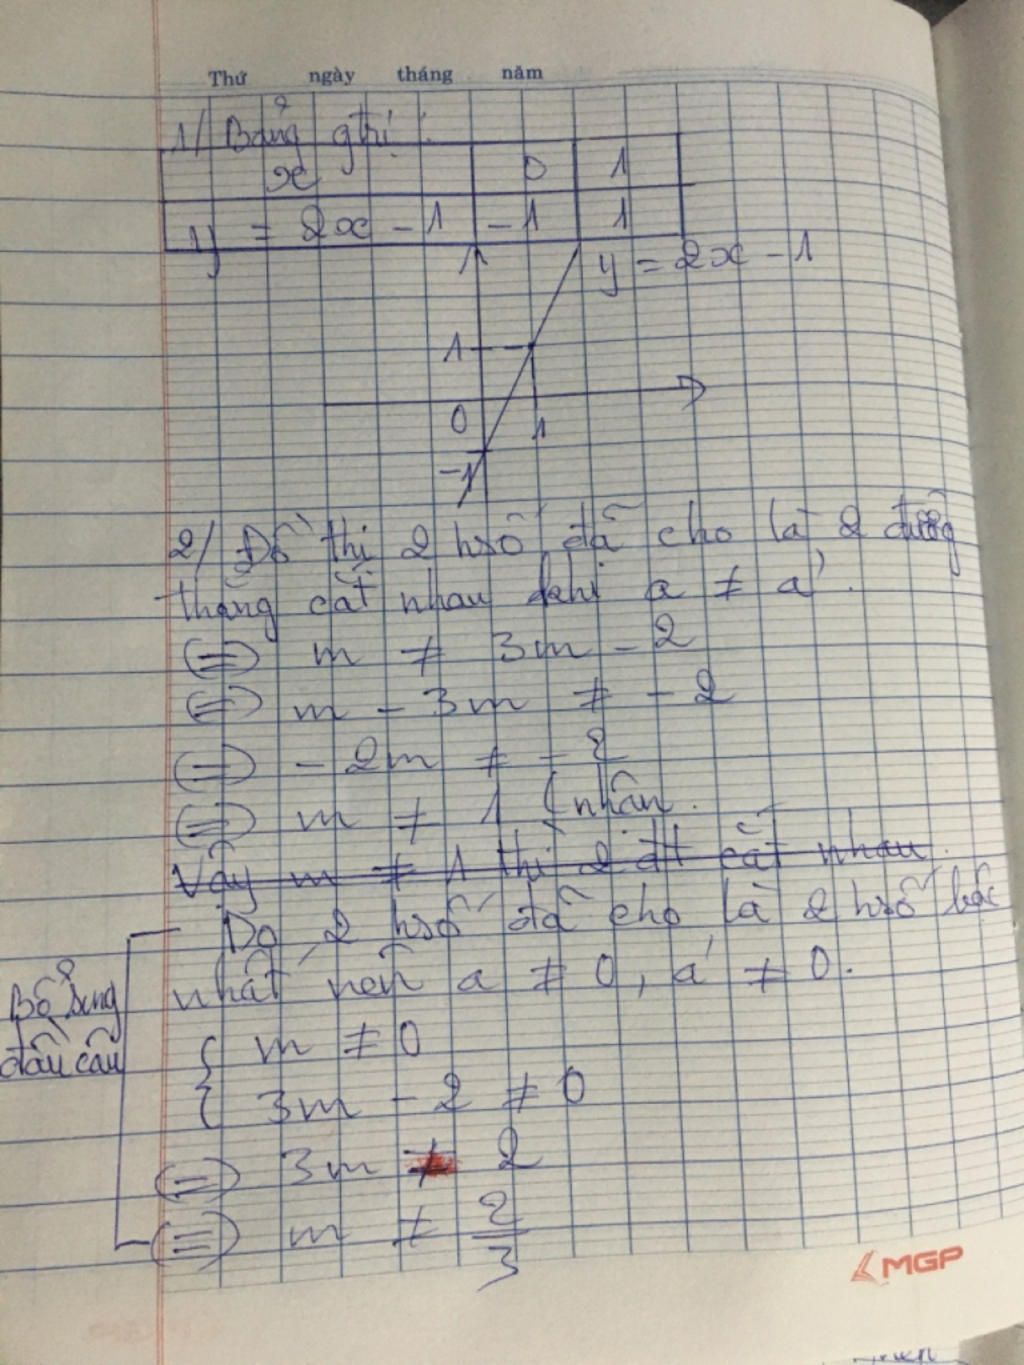 Thứ ngày tháng năm
1/ Bảng gtrị :
x 0 1
y = 2x - 1 -1 1
y = 2x - 1
1
0 1
-1
2/ Đồ thị 2 hsố đã cho là 2 đường
thẳng cắt nhau khi a ≠ a'.
<=> m ≠ 3m - 2
<=> m - 3m ≠ - 2
<=> - 2m ≠ - 2
<=> m ≠ 1 (nhân.
Vậy m ≠ 1 thì 2 đt cắt nhau.
Do 2 hsố đã cho là 2 hsố bậc
nhất nên a ≠ 0, a' ≠ 0.
Bổ sung
đầu câu
{ m ≠ 0
{ 3m - 2 ≠ 0
<=> 3m ≠ 2
<=> m ≠ 2/3
MGP